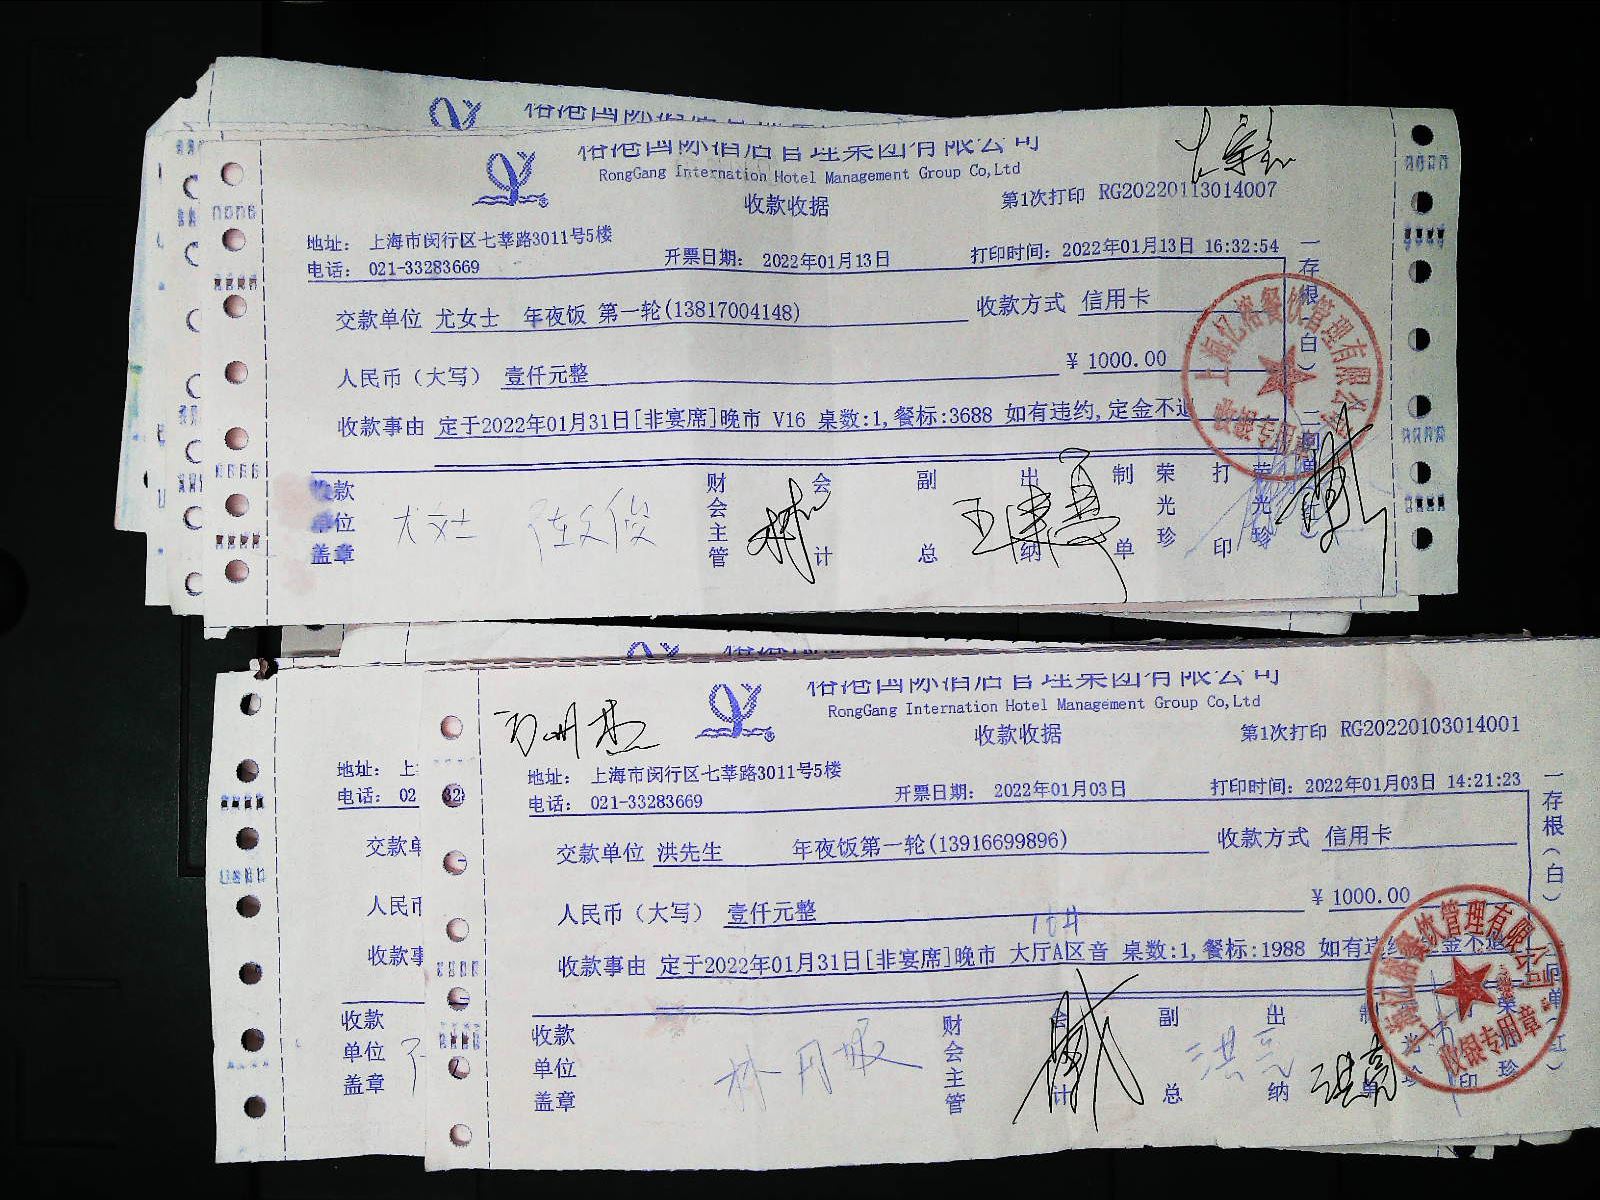 裕港国际酒店管理集团有限公司
RongGang Internation Hotel Management Group Co,Ltd
收款收据
第1次打印 RG20220113014007
地址: 上海市闵行区七莘路3011号5楼
电话: 021-33283669
开票日期: 2022年01月13日
打印时间: 2022年01月13日 16:32:54
交款单位 尤女士 年夜饭 第一轮(13817004148)
收款方式 信用卡
人民币(大写) 壹仟元整
¥ 1000.00
收款事由 定于2022年01月31日[非宴席]晚市 V16 桌数:1,餐标:3688 如有违约,定金不退
收款单位盖章
财会主管
会计
副总
出纳
制单 荣光珍
打印 荣光珍
一存根(白)
裕港国际酒店管理集团有限公司
RongGang Internation Hotel Management Group Co,Ltd
收款收据
第1次打印 RG20220103014001
地址: 上海市闵行区七莘路3011号5楼
电话: 021-33283669
开票日期: 2022年01月03日
打印时间: 2022年01月03日 14:21:23
交款单位 洪先生 年夜饭第一轮(13916699896)
收款方式 信用卡
人民币(大写) 壹仟元整
¥ 1000.00
收款事由 定于2022年01月31日[非宴席]晚市 大厅A区音 桌数:1,餐标:1988 如有违约,定金不退
收款单位盖章
财会主管
会计
副总
出纳
一存根(白)
收银专用章
地址: 上
电话: 02
交款单
人民币
收款事
收款
单位
盖章